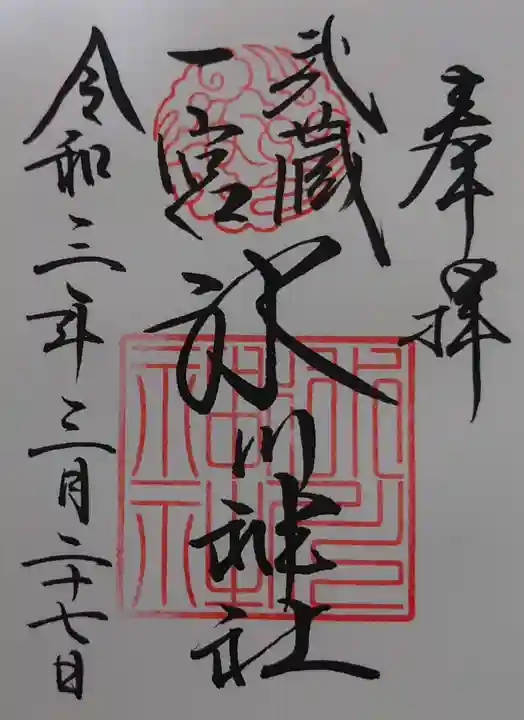 奉拝
武蔵
一宮
氷川神社
令和三年三月二十七日